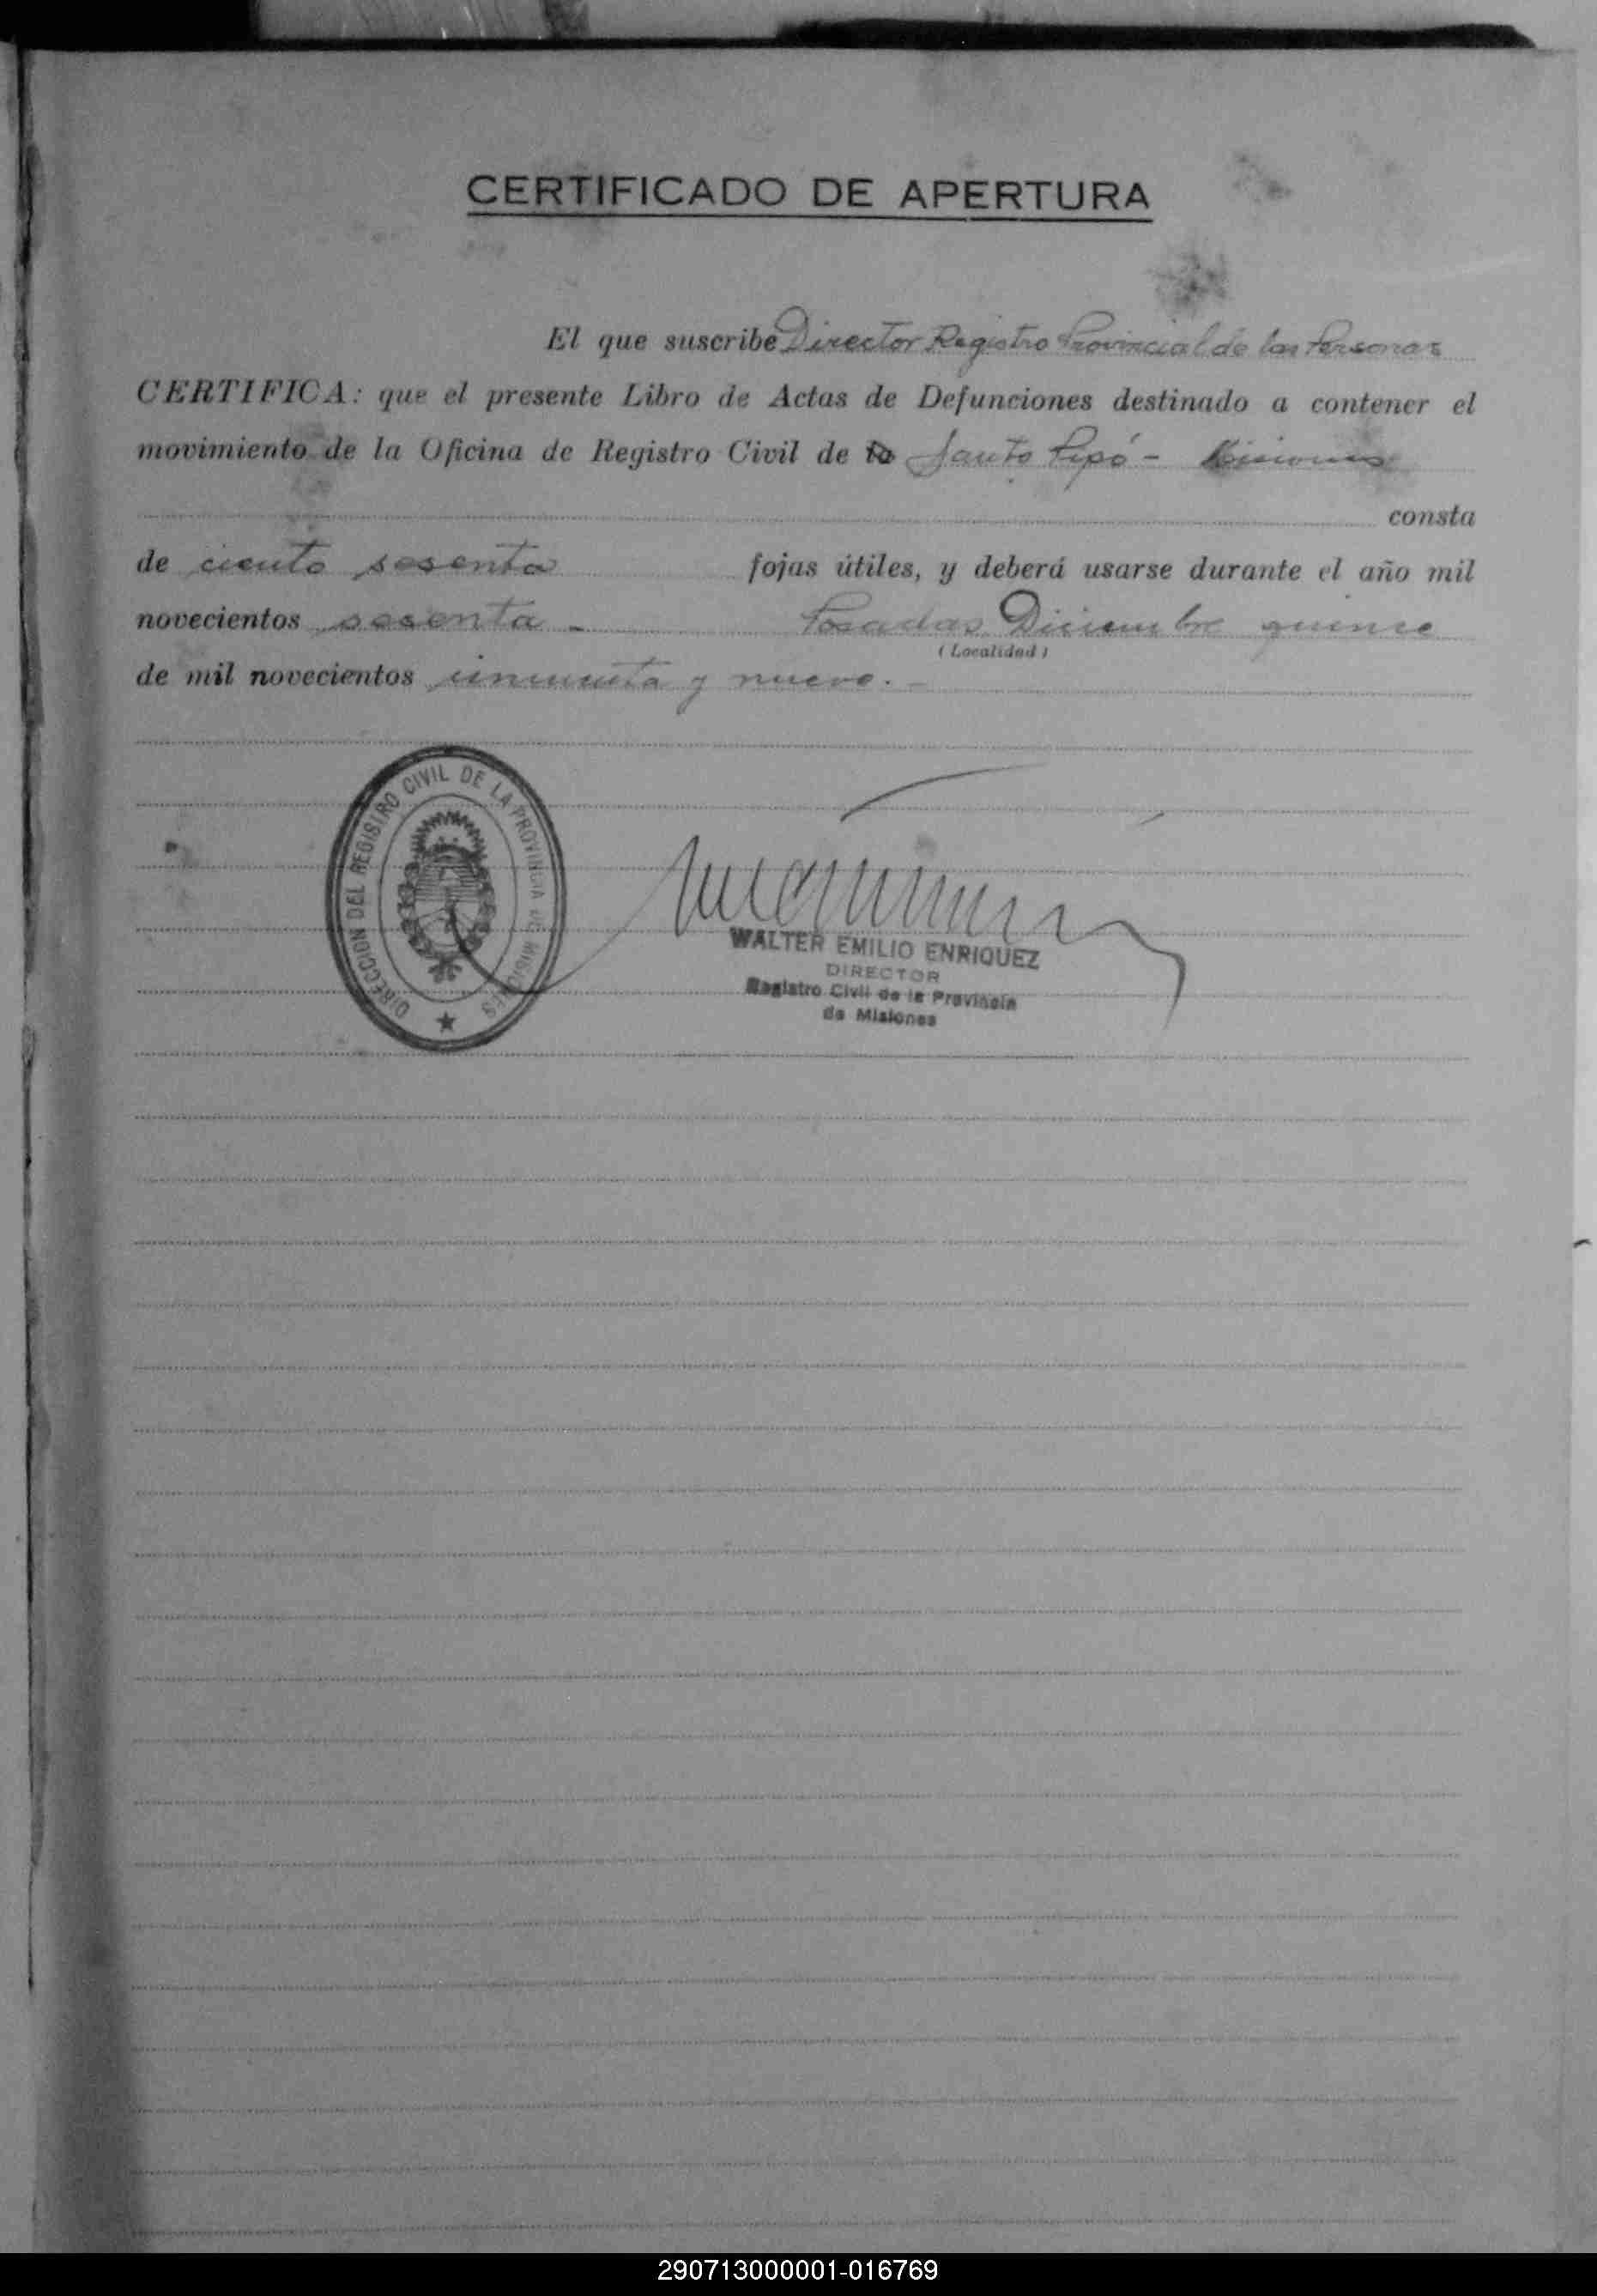 CERTIFICADO DE APERTURA
El que suscribe Director Registro Provincial de las Personas
CERTIFICA: que el presente Libro de Actas de Defunciones destinado a contener el
movimiento de la Oficina de Registro Civil de Santo Pipó - Misiones
consta
de ciento sesenta fojas útiles, y deberá usarse durante el año mil
novecientos sesenta - Posadas Diciembre quince
(Localidad)
de mil novecientos cincuenta y nueve. -
DIRECCION DEL REGISTRO CIVIL DE LA PROVINCIA DE MISIONES
WALTER EMILIO ENRIQUEZ
DIRECTOR
Registro Civil de la Provincia
de Misiones
290713000001-016769